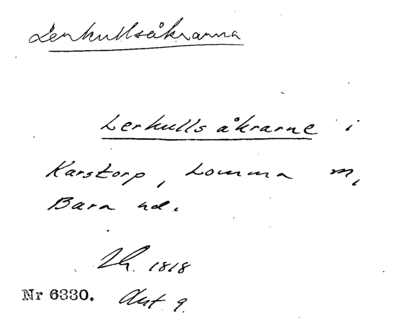 Lerhullsåkrarna
Lerhulls åkrarne i
Karstorp, Lomma m,
Bara hd.
1818
Nr 6330. Aut 9.